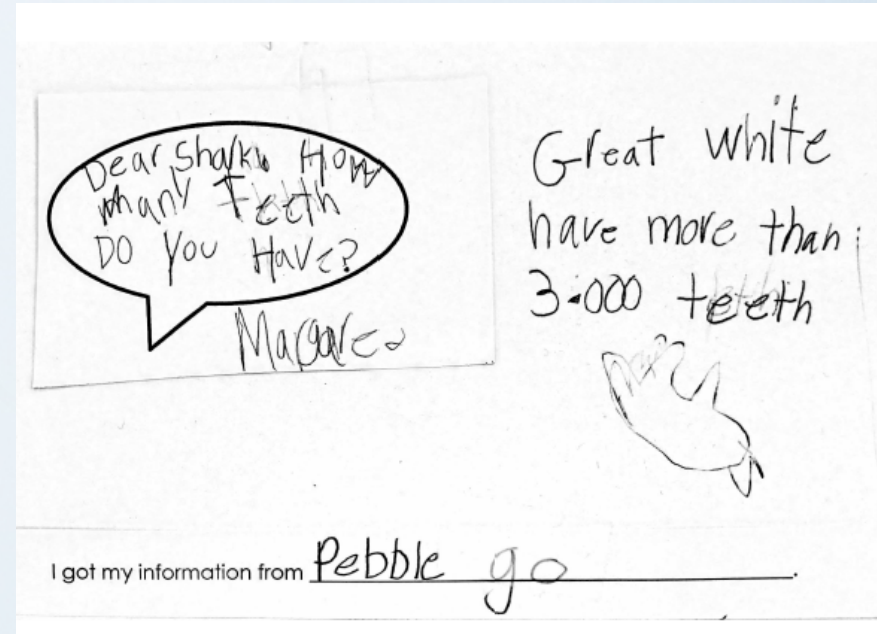 Dear Shark, How
many Teeth
DO You Have?
Great white
have more than
3.000 teeth
I got my information from Pebble go.